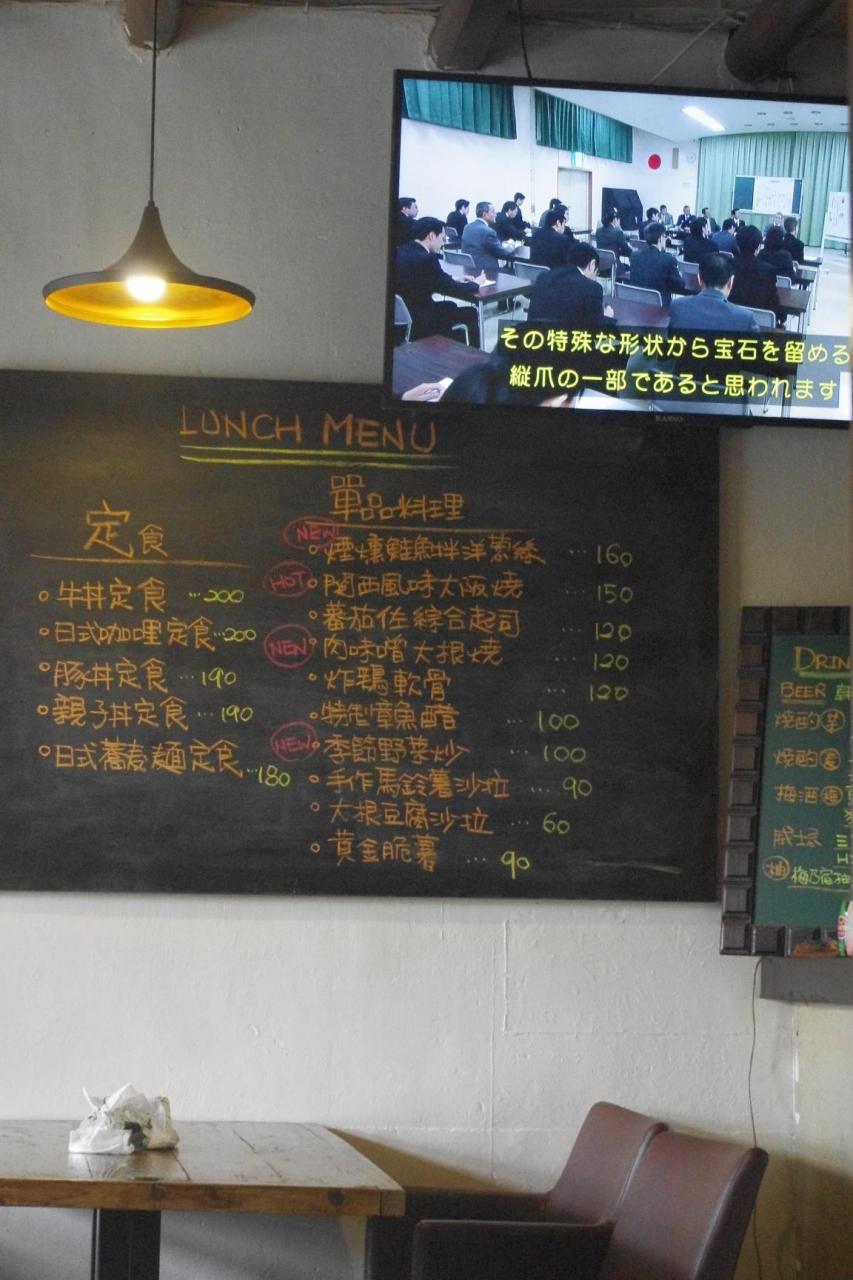 その特殊な形状から宝石を留める
縦爪の一部であると思われます
LUNCH MENU
定食
牛丼定食 …200
日式咖哩定食…200
豚丼定食 …190
親子丼定食 …190
日式蕎麦麵定食 …180
單品料理
NEW 煙燻鮭魚拌洋蔥絲 … 160
HOT 関西風味大阪燒 … 150
蕃茄佐綜合起司 … 120
NEW 肉味噌大根燒 … 120
炸鶏軟骨 … 120
特製章魚醋 … 100
NEW 季節野菜炒 … 100
手作馬鈴薯沙拉 … 90
大根豆腐沙拉 … 60
黄金脆薯 … 90
DRIN
BEER
焼酌
焼酌
梅酒